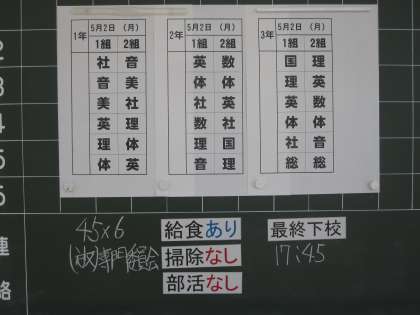 1年 5月2日（月） 1組 2組
社 音
音 美
美 社
英 理
理 体
体 英
2年 5月2日（月） 1組 2組
英 数
体 体
社 英
数 社
理 国
音 理
3年 5月2日（月） 1組 2組
国 理
理 英
英 数
体 体
社 音
総 総
2
3
4
5
6
連
絡
45×6
(放)専門委員会
給食あり
掃除なし
部活なし
最終下校
17:45